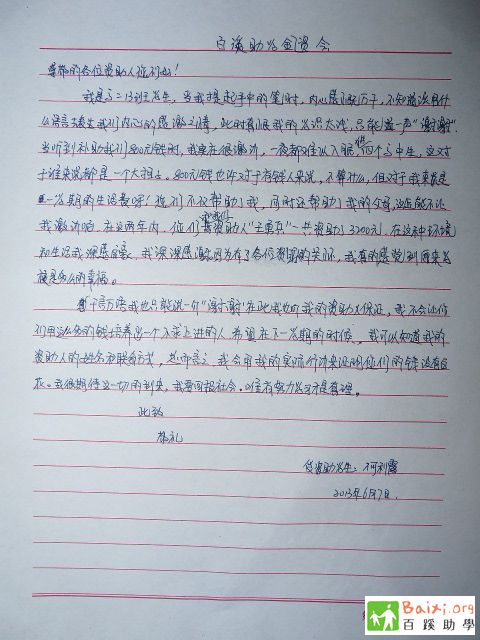 百蹊助学基资会
尊敬的各位资助人你们好！
我是高二13班学生，当我提起手中的笔时，内心感慨万千，不知道该用什
么语言表达我们内心的感激之情，此时有恨我的学识太浅，只能道一声"谢谢"。
当听到补助我们800元钱时，我实在很激动，一夜都难以入眠，供两个高中生，这对
于谁来说都是一个大担子。800元钱也许对于有钱人来说，不算什么，但对于我来说是
一学期的生活费啊！你们不仅帮助了我，同时还帮助了我的父母，这怎能不让
我激动呢，在这两年内，你们资助人"一共资助了3200元，在这种环境
和生活我深感自豪，我深深感激因为有了各位资助的关怀，我真的感觉到原来我
是多么的幸福。
千言万语我也只能说一个"谢谢"在此我也向我的资助人保证，我不会让你
们用这么多的钱培养出一个不求上进的人，希望在下一学期的时候，我可以知道我的
资助人的姓名和联系方式，总而言之，我会用我的实际行动来证明你们的钱没有白
花。我很期待这一切的到来，我要回报社会。唯有努力学习才是真理。
此致
敬礼
受资助学生：
2013年6月7日.
Baixi.org
百蹊助學